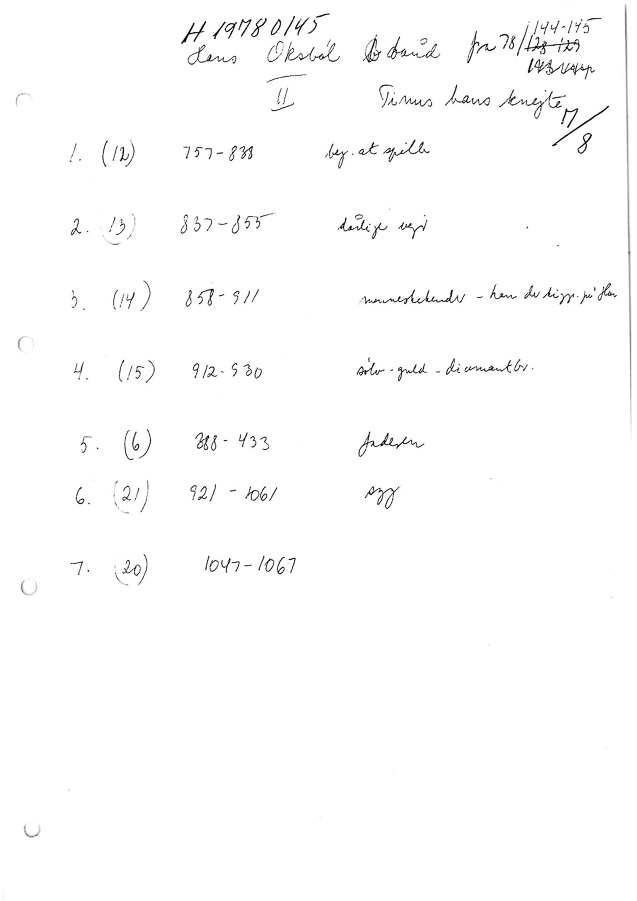 H 19780145
Hans Oksbøl bånd fra 78/144-145
128-129
II Tinus hans knejte 17/8
1. (12) 757-838 beg. at spille
2. (13) 837-855 dårlige vejr
3. (14) 858-911 menneskekender - han der
4. (15) 912-930 sølv-guld-diamantbr.
5. (6) 388-433 Faderen
6. (21) 921-1061 syg
7. (20) 1047-1067